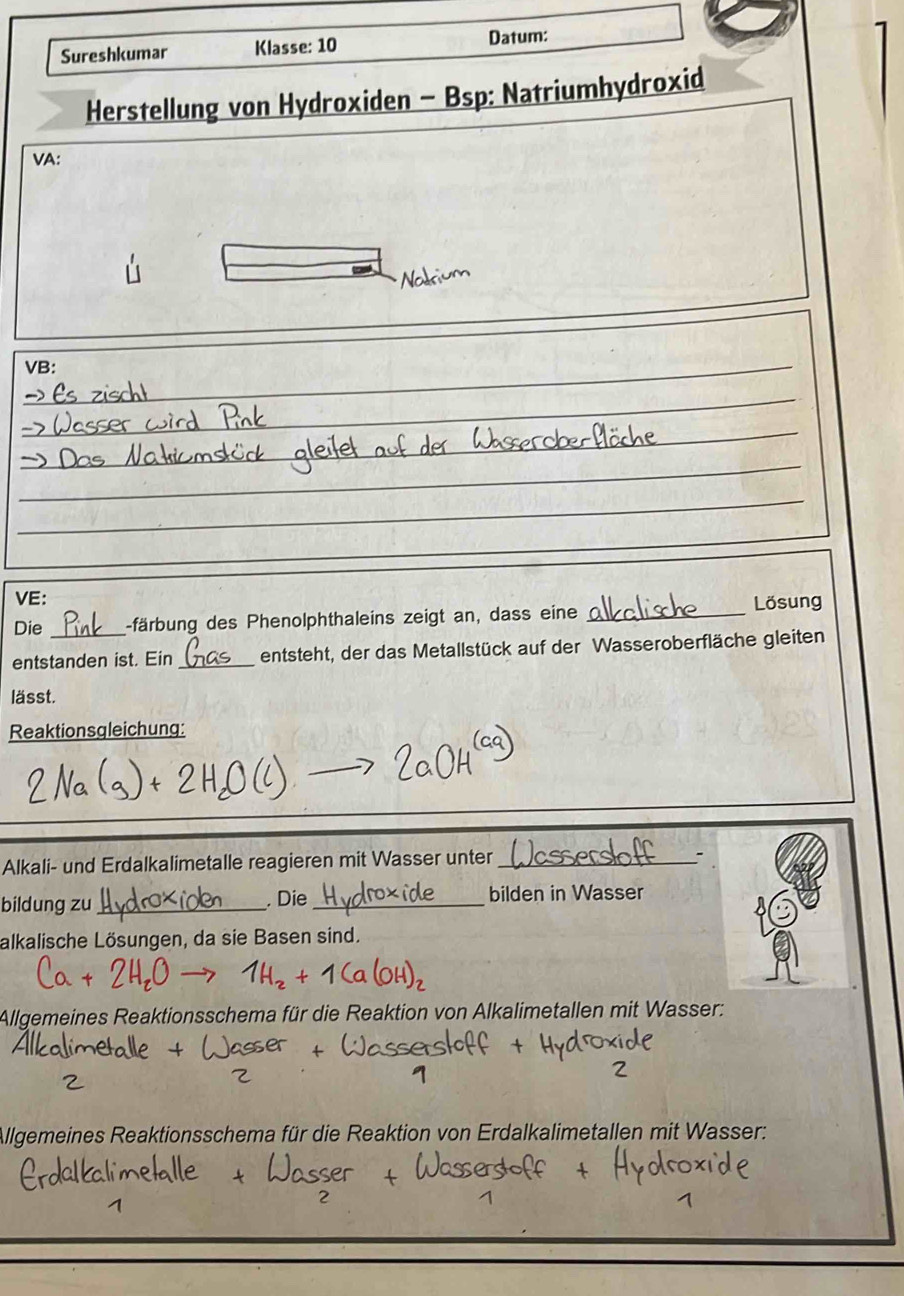 Sureshkumar Klasse: 10 Datum:
Herstellung von Hydroxiden – Bsp: Natriumhydroxid
VA:
Natrium
VB:
-> Es zischt
-> Wasser wird Pink
-> Das Natriumstück gleitet auf der Wasseroberfläche
VE:
Die Pink-färbung des Phenolphthaleins zeigt an, dass eine alkalische Lösung
entstanden ist. Ein Gas entsteht, der das Metallstück auf der Wasseroberfläche gleiten
lässt.
Reaktionsgleichung:
2 Na (g) + 2 H₂O (l) → 2aOH (aq)
Alkali- und Erdalkalimetalle reagieren mit Wasser unter Wasserstoff-
bildung zu Hydroxiden. Die Hydroxide bilden in Wasser
alkalische Lösungen, da sie Basen sind.
Ca + 2H₂O → 1H₂ + 1Ca(OH)₂
Allgemeines Reaktionsschema für die Reaktion von Alkalimetallen mit Wasser:
Alkalimetalle + Wasser + Wasserstoff + Hydroxide
2 2 1 2
Allgemeines Reaktionsschema für die Reaktion von Erdalkalimetallen mit Wasser:
Erdalkalimetalle + Wasser + Wasserstoff + Hydroxide
1 2 1 1